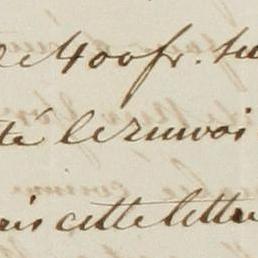 de 400 fr. su
té le renvoi
ris cette lettre